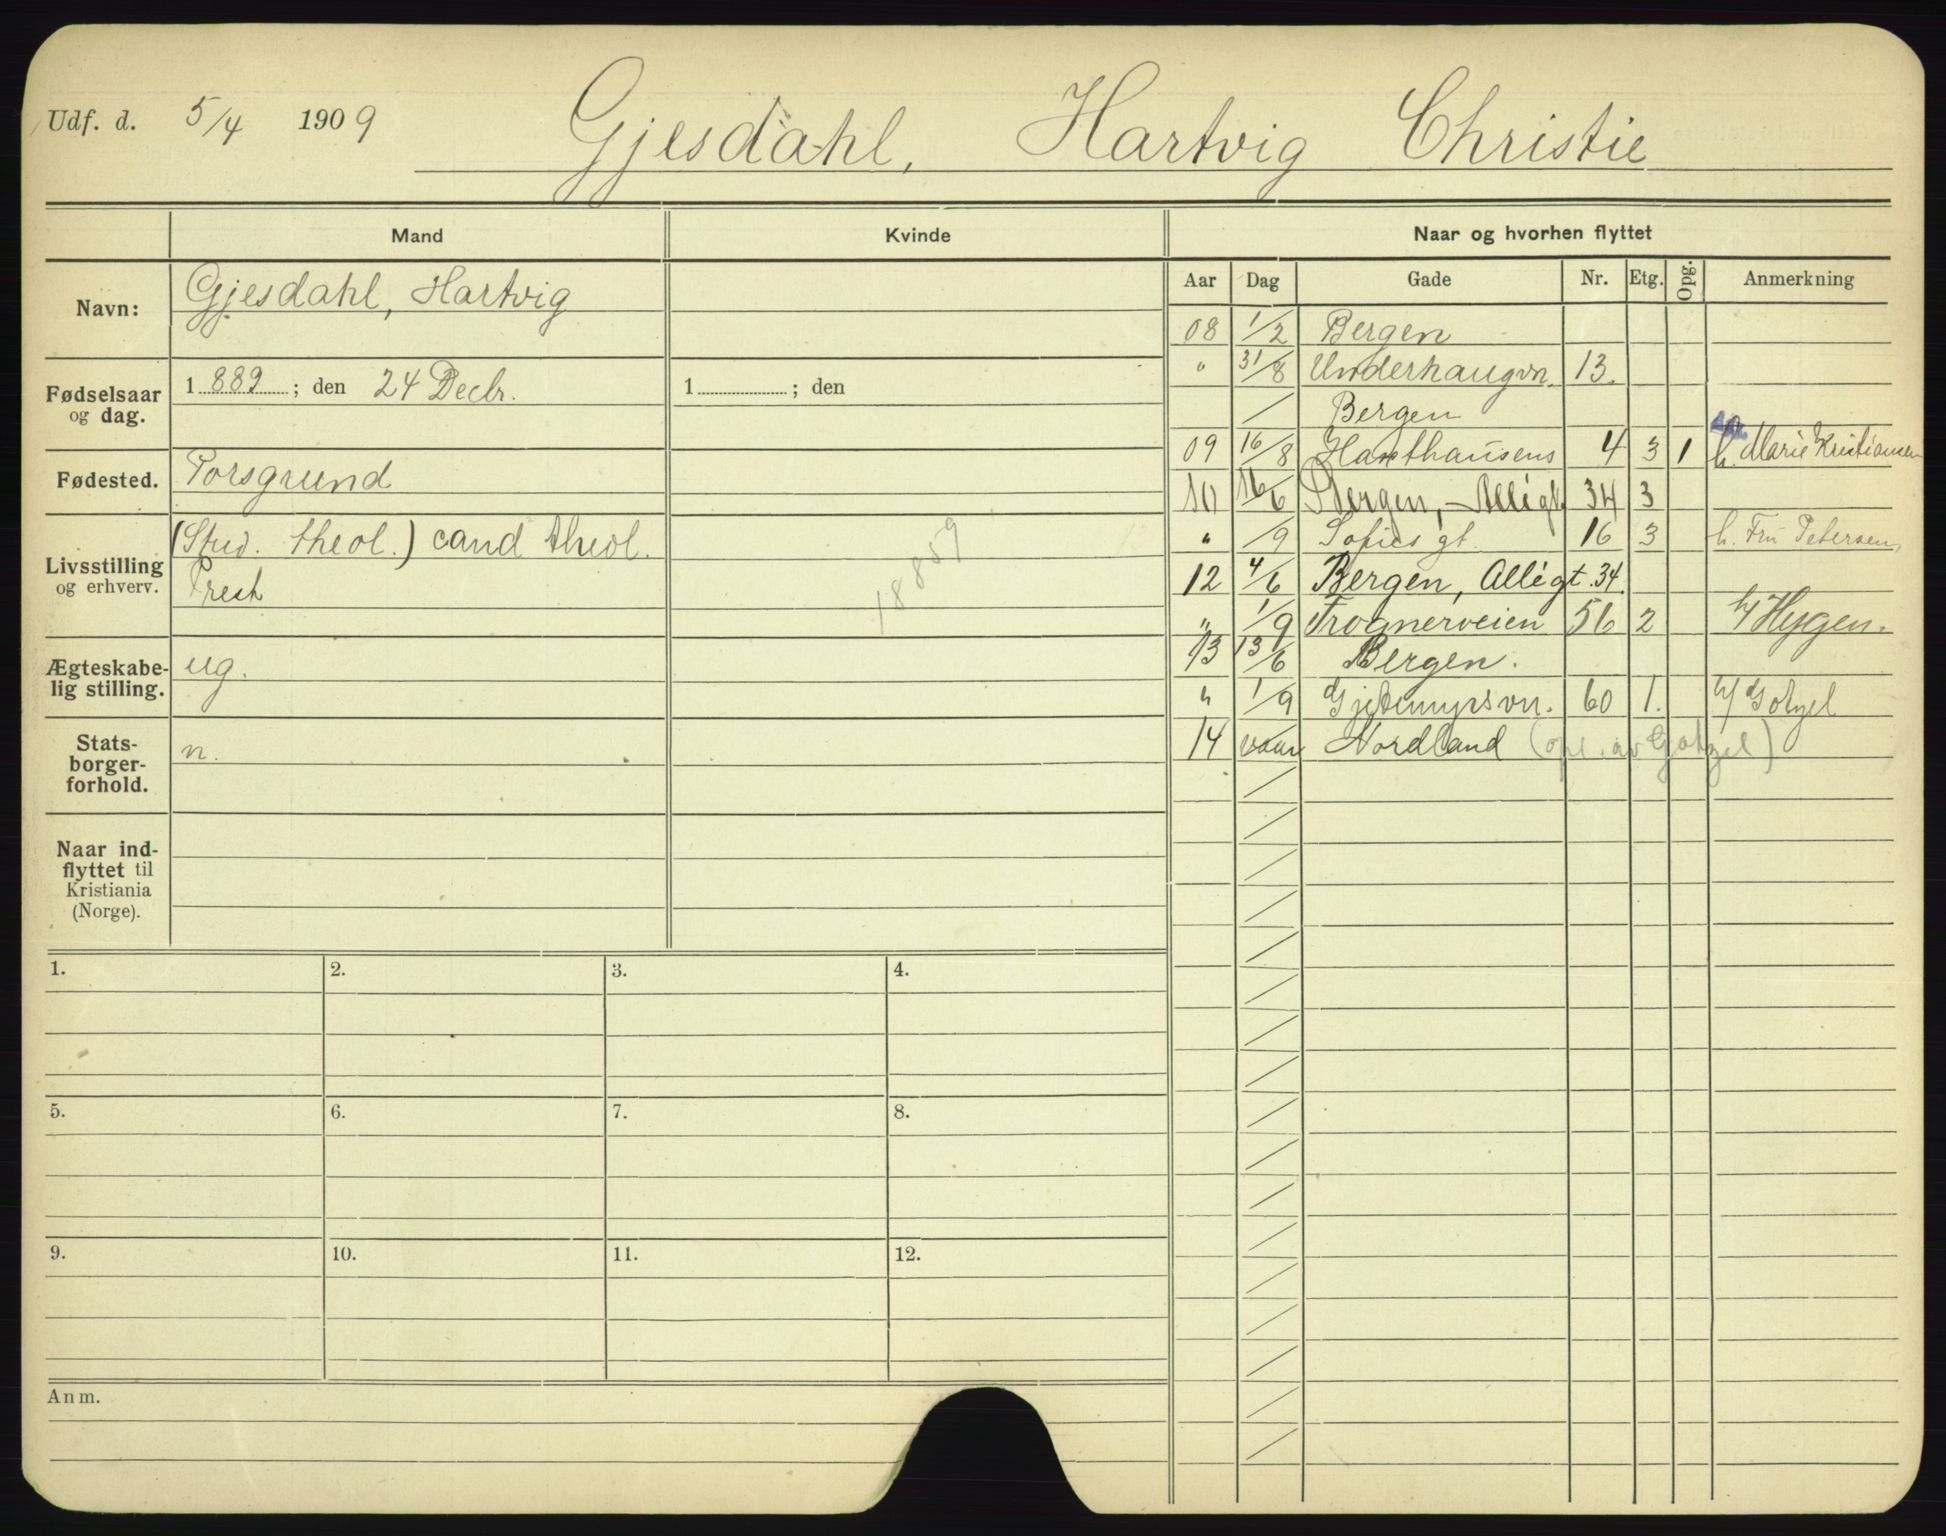 Udf. d. 5/4 1909 Gjesdahl, Hartvig Christie
Mand
Kvinde
Naar og hvorhen flyttet
Navn: Gjesdahl, Hartvig
Fødselsaar og dag. 1889; den 24 Decbr.
1 ; den
Fødested. Porsgrund
Livsstilling og erhverv. (Stud. theol.) cand theol.
Prest
18859
Ægteskabelig stilling. ug.
Statsborgerforhold. n.
Naar indflyttet til Kristiania (Norge).
Aar Dag Gade Nr. Etg. Opg. Anmerkning
08 1/2 Bergen
" 31/8 Underhaugvn. 13.
/ Bergen
09 16/8 Hansthausens 4 3 1 h. Marie Kristiansen
10 16/6 Bergen, - Allégt. 34 3
" /9 Sofies gt. 16 3 h. Fru Petersen,
12 4/6 Bergen, Allégt. 34.
" 1/9 Trognerveien 56 2 h/ Hygen.
13 13/6 Bergen.
" 1/9 Gjetemyrsvn. 60 1. h/ Gotzel
14 vaar Nordland (opl. av Gotzel)
1. 2. 3. 4.
5. 6. 7. 8.
9. 10. 11. 12.
Anm.